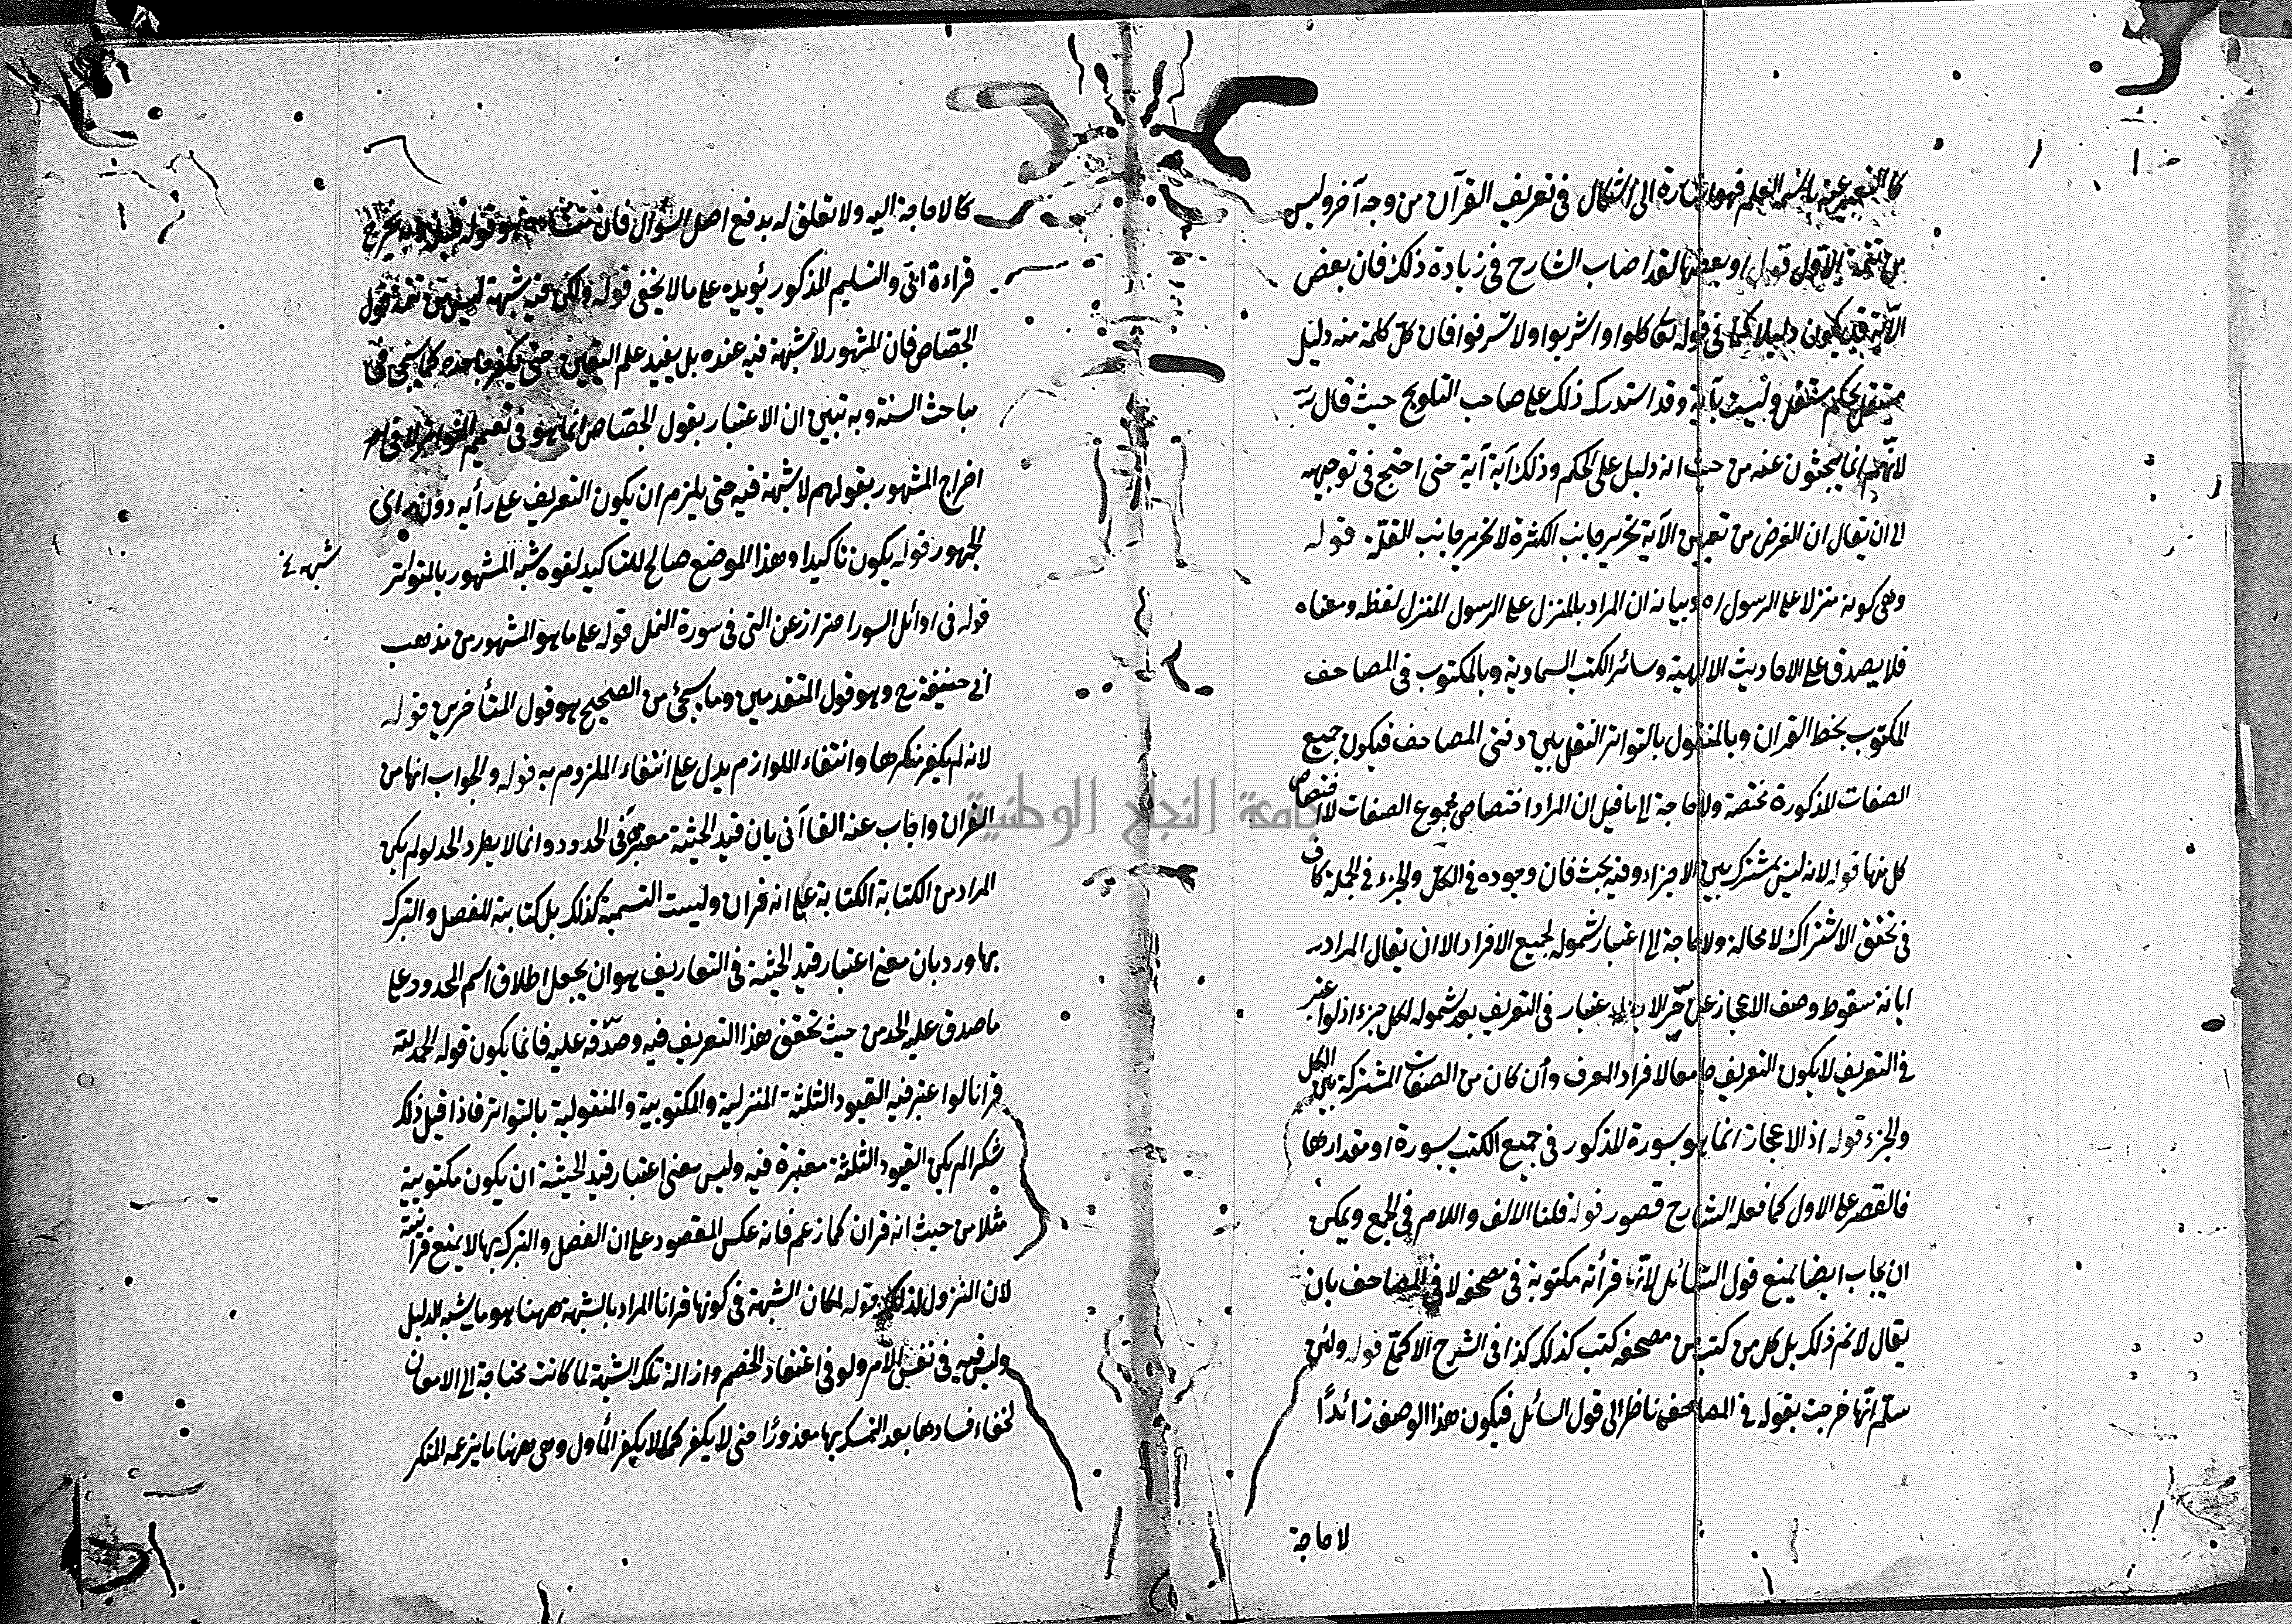 فهو اشارة الى اشكال في تعريف القرآن من وجه آخر وليس
من تتمة الاول قوله او بعضها لقد اصاب الشارح في زيادة ذلك فان بعض
الآية قد يكون دليلا كما في قوله تعالى كلوا واشربوا ولا تسرفوا فان كل كلمة منه دليل
مستقل بحكم مستقل وليست بآية وقد استدرك ذلك على صاحب التلويح حيث قال
لانهم انما يبحثون عنه من حيث انه دليل على الحكم وذلك آية آية حتى احتج في توجيهه
الى ان يقال ان الغرض من تعيين الآية تحرير جانب الكثرة لا تحرير جانب القلة قوله
وهي كونه منزلا على الرسول اه وبيانه ان المراد بالمنزل على الرسول المنزل لفظه ومعناه
فلا يصدق على الاحاديث الالهية وسائر الكتب السماوية وبالمكتوب في المصاحف
المكتوب بخط القران وبالمنقول بالتواتر النقل بين دفتي المصاحف فيكون جميع
الصفات المذكورة مختصة ولا حاجة الى ما قيل ان المراد اختصاص مجموع الصفات لا اختصاص
كل منها قوله لانه ليس بمشترك بين الاجزاء وفيه بحث فان وجوده في الكل والجزء في الجملة كاف
في تحقق الاشتراك لا محالة ولا حاجة الى اعتبار شموله لجميع الافراد الا ان يقال المراد
ابانة سقوط وصف الاعجاز عن حيز الاعتبار في التعريف بعد شموله لكل جزء اذ لو اعتبر
في التعريف لا يكون التعريف جامعا لافراد المعرف وان كان من الصفات المشتركة بين الكل
والجزء قوله اذ الاعجاز انما هو بسورة المذكور في جميع الكتب بسورة او مقدارها
فالقصر على الاول كما فعله الشارح قصور قوله قلنا الالف واللام في الجمع ويمكن
ان يجاب ايضا بمنع قول السائل لانها قرأته مكتوبة في مصحفه لا في المصاحف بان
يقال لا نم ذلك بل كل من كتب من مصحفه كتب كذلك كذا في الشرح الاكملي قوله ولئن
سلم انها خرجت بقوله في المصاحف ناظر الى قول السائل فيكون هذا الوصف زائدًا
لا حاجة
كالا حاجة اليه ولا تعلق له بدفع اصل السؤال فان منشأه هو قوله
قراءة ابيّ والتسليم المذكور يؤيده على ما لا يخفى قوله ولكن فيه شبهة ليس من تتمة قول
الجصاص فان المشهور لا شبهة فيه عنده بل يفيد علم اليقين حتى يكفر جاحده كما سيجئ في
مباحث السنة وبه تبين ان الاعتبار بقول الجصاص انما هو في تعميم المتواتر لا في
اخراج المشهور بقولهم لا شبهة فيه حتى يلزم ان يكون التعريف على رأيه دون رأي
الجمهور قوله يكون تاكيدا وهذا الموضع صالح للتاكيد لقوة شبه المشهور بالمتواتر
شبهه خ
قوله في اوائل السور احتراز عن التي في سورة النمل قوله على ما هو المشهور من مذهب
ابي حنيفة رح وهو قول المتقدمين وما سيجئ من الصحيح هو قول المتأخرين قوله
لانه لم يكفر منكرها وانتفاء اللوازم يدل على انتفاء الملزوم به قوله والجواب انها من
القران واجاب عنه القاآني بان قيد الحيثية معتبر في الحدود وانما لا يطرد الحد لو لم يكن
المراد من الكتابة الكتابة على انه قران وليست التسمية كذلك بل كتابته للفصل والتبرك
بها ورد بان معنى اعتبار قيد الحيثية في التعاريف هو ان يجعل اطلاق اسم المحدود على
ما صدق عليه الحد من حيث تحقق هذا التعريف فيه وصدقه عليه فانما يكون قوله الحمد لله
قرانا لو اعتبر فيه القيود الثلثة المنزلية والمكتوبية والمنقولية بالتواتر فاذا قيل ذلك
شكرا لم يكن القيود الثلثة معتبرة فيه وليس معنى اعتبار قيد الحيثية ان يكون مكتوبية
مثلا من حيث انه قران كما زعم فانه عكس المقصود على ان الفصل والتبرك بها لا يمنع قرآنيته
لان النزول لذلك قوله لمكان الشبهة في كونها قرانا المراد بالشبهة ههنا هو ما يشبه الدليل
وليس فيه في نفس الامر ولو في اعتقاد الخصم وازالة تلك الشبهة لما كانت محتاجة الى الامعان
لخفاء فسادها بعد التمسك بها معذورًا حتى لا يكفر كما لا يكفر المأول وهي ههنا ما يزعمه المنكر
جامعة النجاح الوطنية